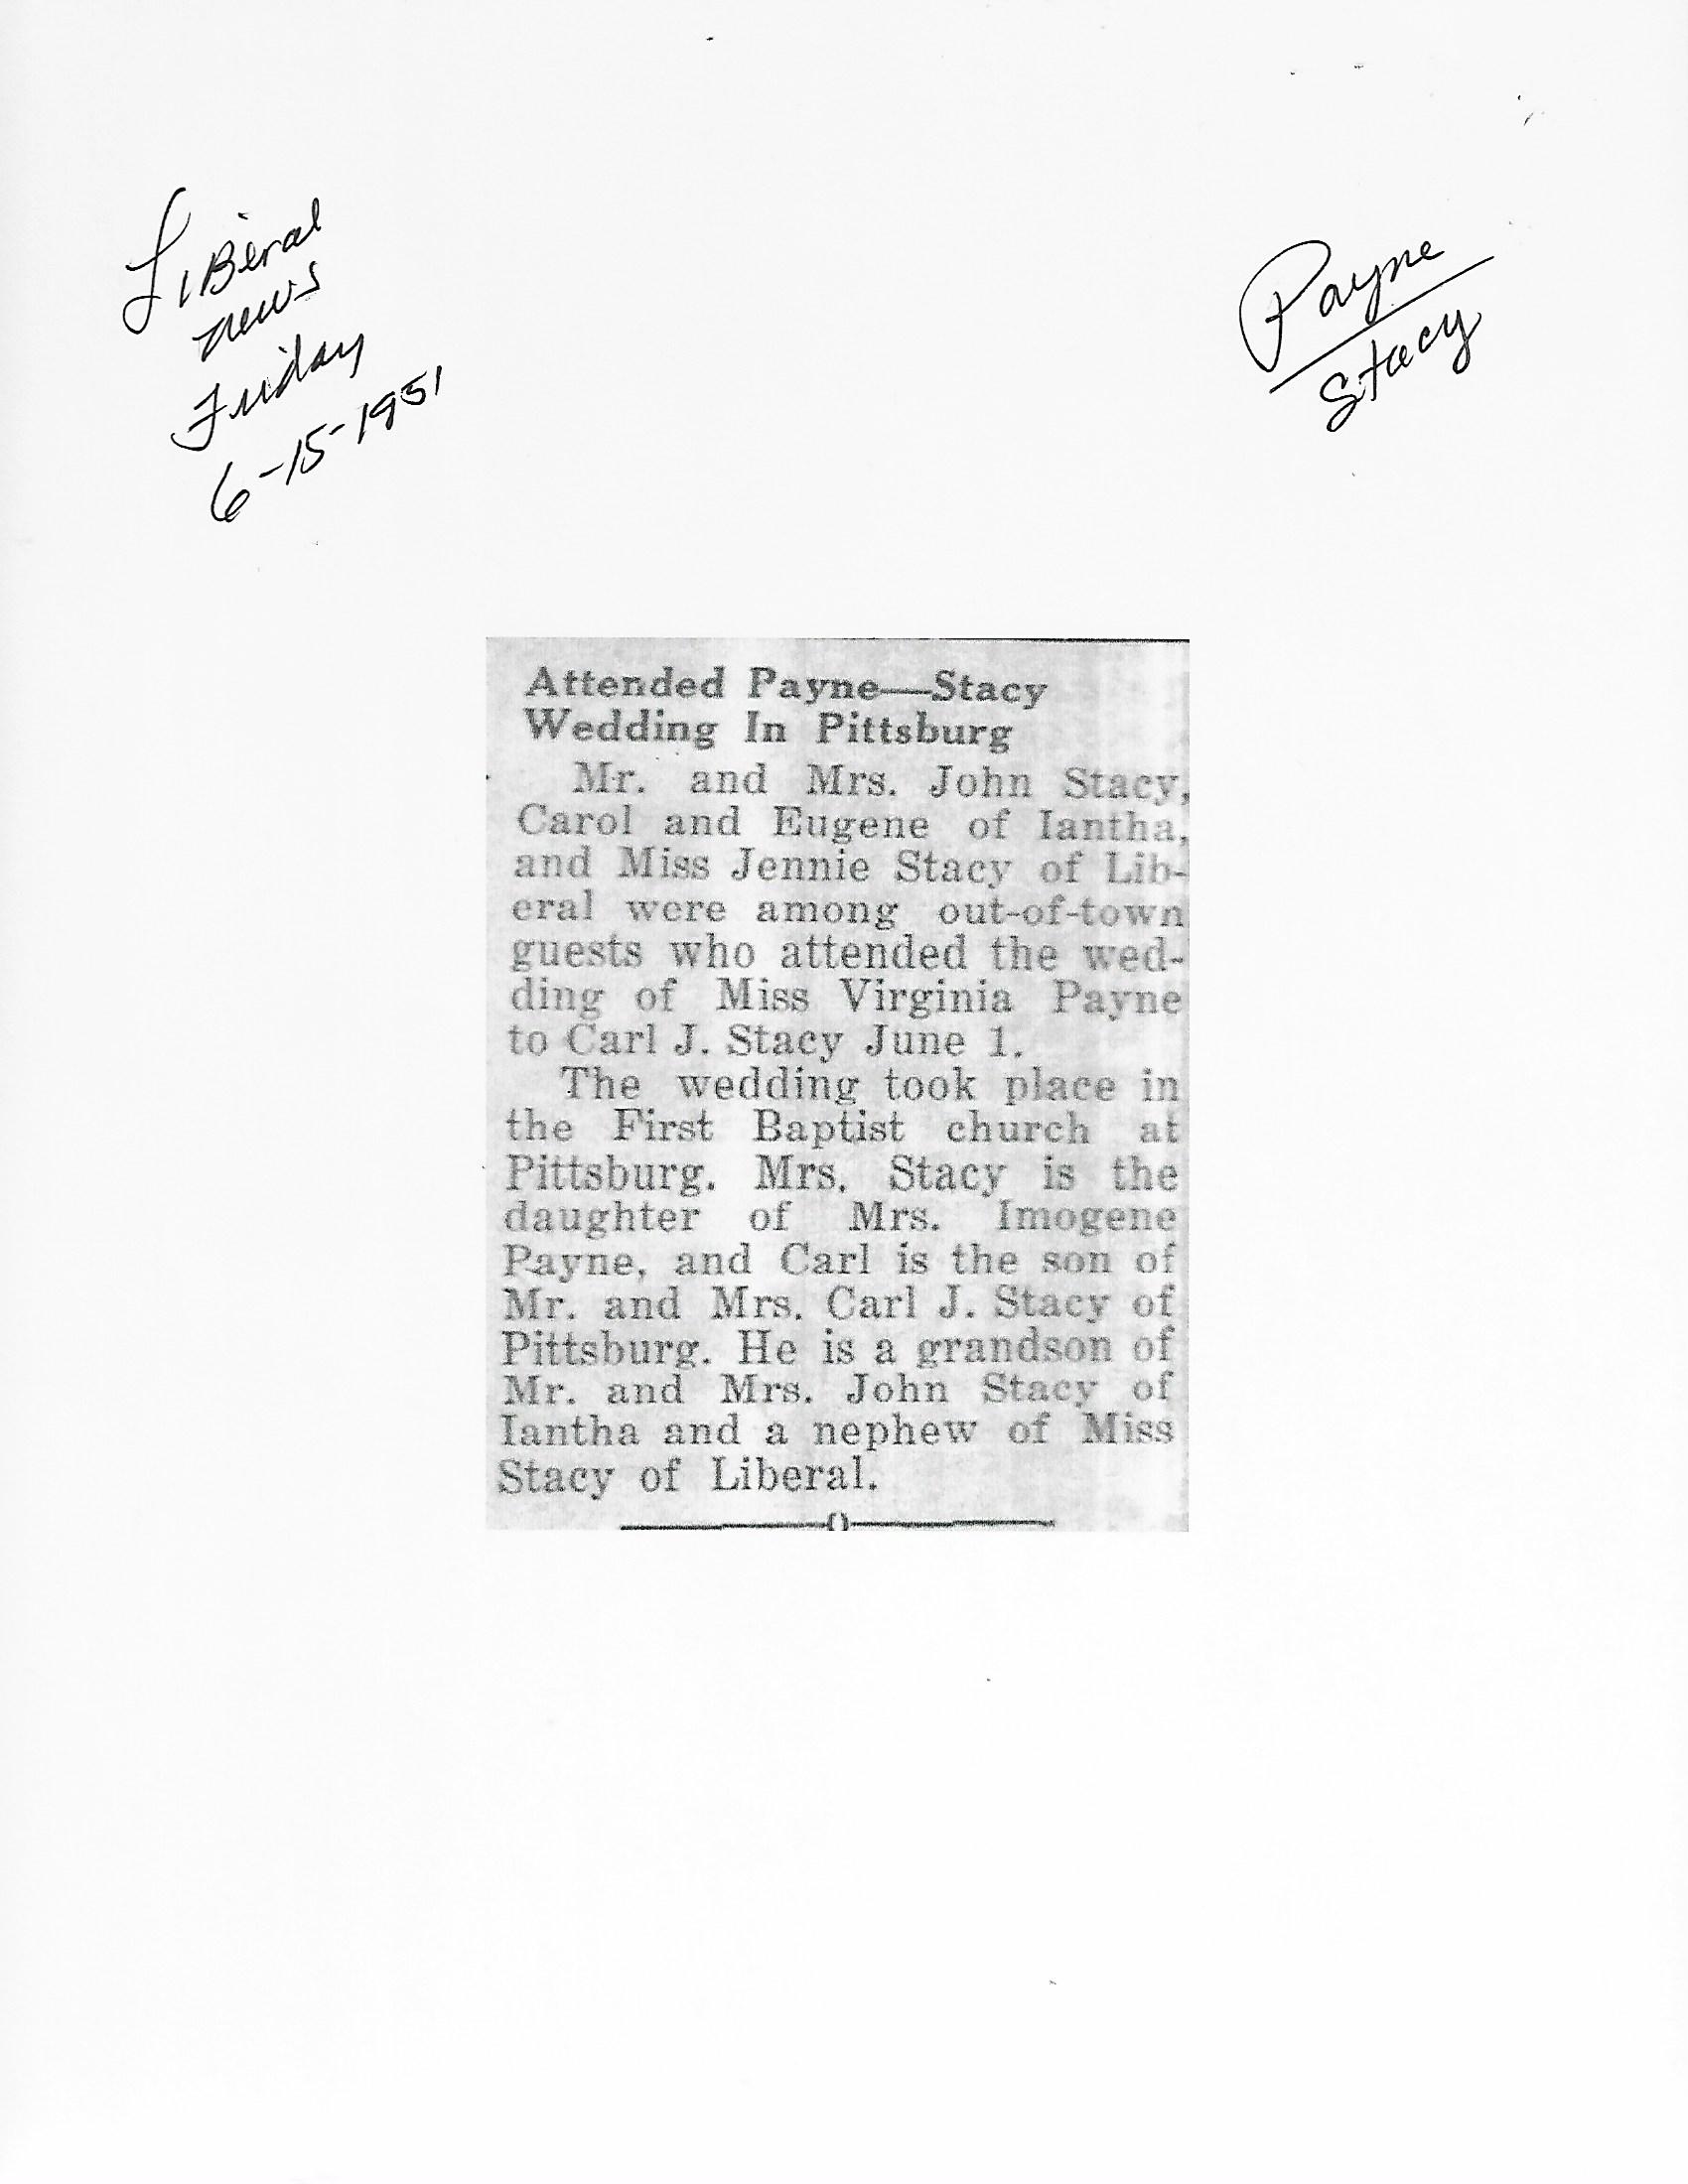 LiBeral
news
Friday
6-15-1951
Payne
Stacy
Attended Payne—Stacy
Wedding In Pittsburg
Mr. and Mrs. John Stacy,
Carol and Eugene of Iantha,
and Miss Jennie Stacy of Lib-
eral were among out-of-town
guests who attended the wed-
ding of Miss Virginia Payne
to Carl J. Stacy June 1.
The wedding took place in
the First Baptist church at
Pittsburg. Mrs. Stacy is the
daughter of Mrs. Imogene
Payne, and Carl is the son of
Mr. and Mrs. Carl J. Stacy of
Pittsburg. He is a grandson of
Mr. and Mrs. John Stacy of
Iantha and a nephew of Miss
Stacy of Liberal.